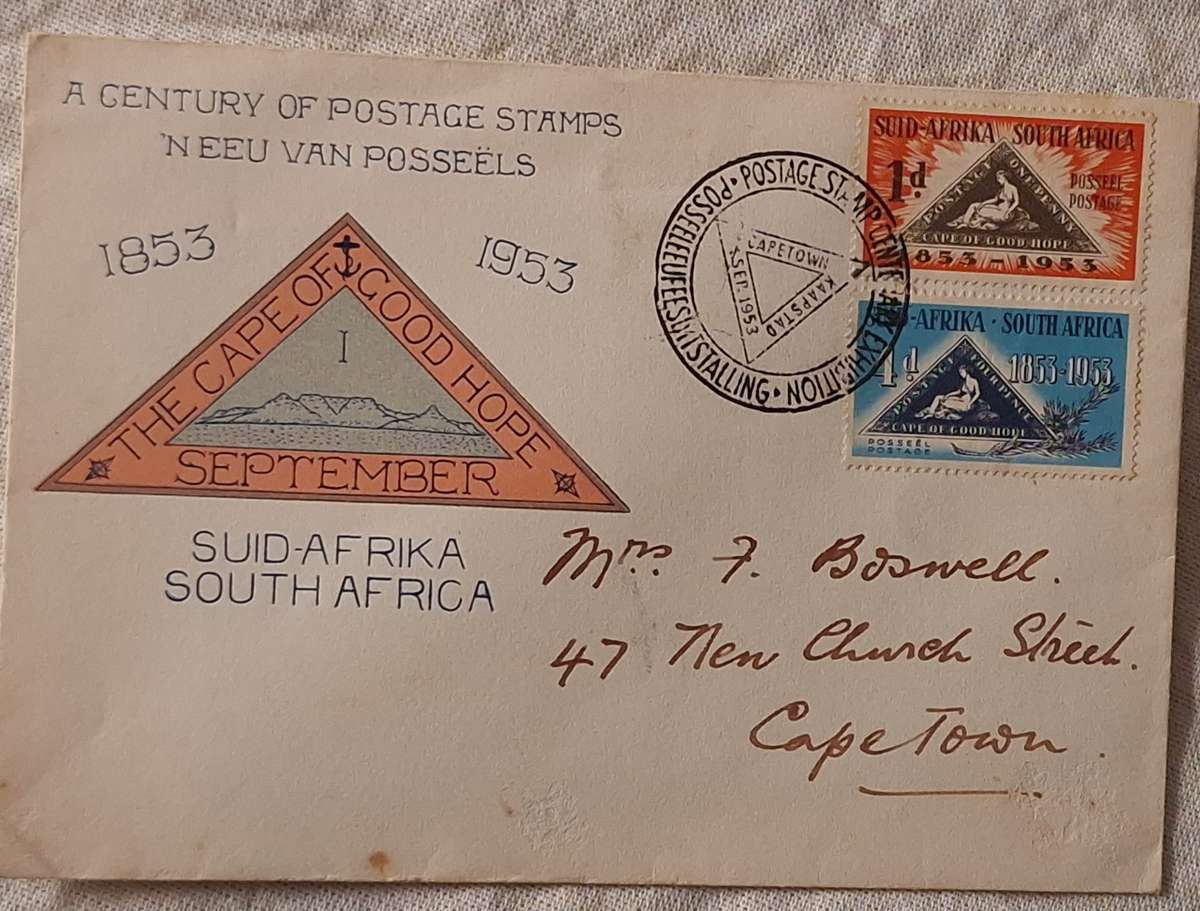 A CENTURY OF POSTAGE STAMPS
'N EEU VAN POSSEËLS
1853 1953
THE CAPE OF GOOD HOPE
I
SEPTEMBER
SUID-AFRIKA
SOUTH AFRICA
POSTAGE STAMP CENTENARY EXHIBITION • POSSEËLEEUFEESUITSTALLING •
CAPETOWN
KAAPSTAD
SEP. 1953
SUID-AFRIKA SOUTH AFRICA
1d
POSSEËL
POSTAGE
POSTAGE ONE PENNY
CAPE OF GOOD HOPE
1853-1953
-AFRIKA · SOUTH AFRICA
4d
1853-1953
POSTAGE
CAPE OF GOOD HOPE
POSSEËL
POSTAGE
Mrs. F. Boswell.
47 New Church Street.
Cape Town.